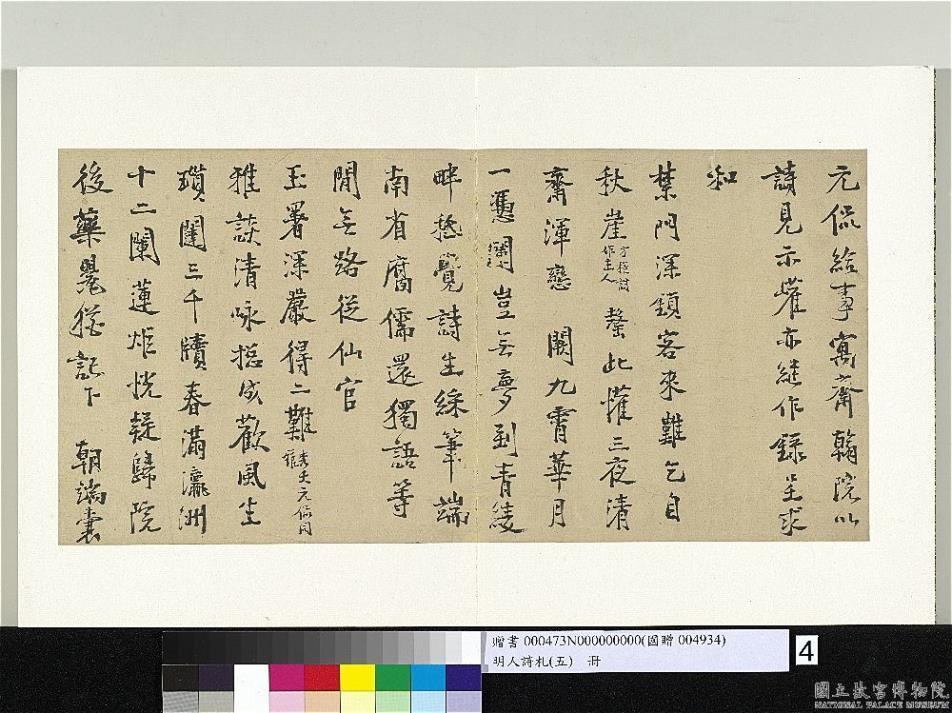 元侃給事寓齋翰院以
詩見示懽亦繼作錄呈求
和
禁門深鎖客來難乞自
秋崖 作主人 盤此懽三夜清
齋渾戀 闕九霄華月
一憑闌豈無夢到青綾
畔愁覺詩生綵筆端
南省腐儒還獨語等
閒無路從仙官
玉署深嚴得二難 元侃同
雅談清咏揔成歡風生
瑣闥三千牘春滿瀛洲
十二闌蓮炬恍疑歸院
後藥罍猶記下 朝端囊
贈書 000473N000000000(國贈 004934)
明人詩札(五) 冊
4
國立故宮博物院
NATIONAL PALACE MUSEUM